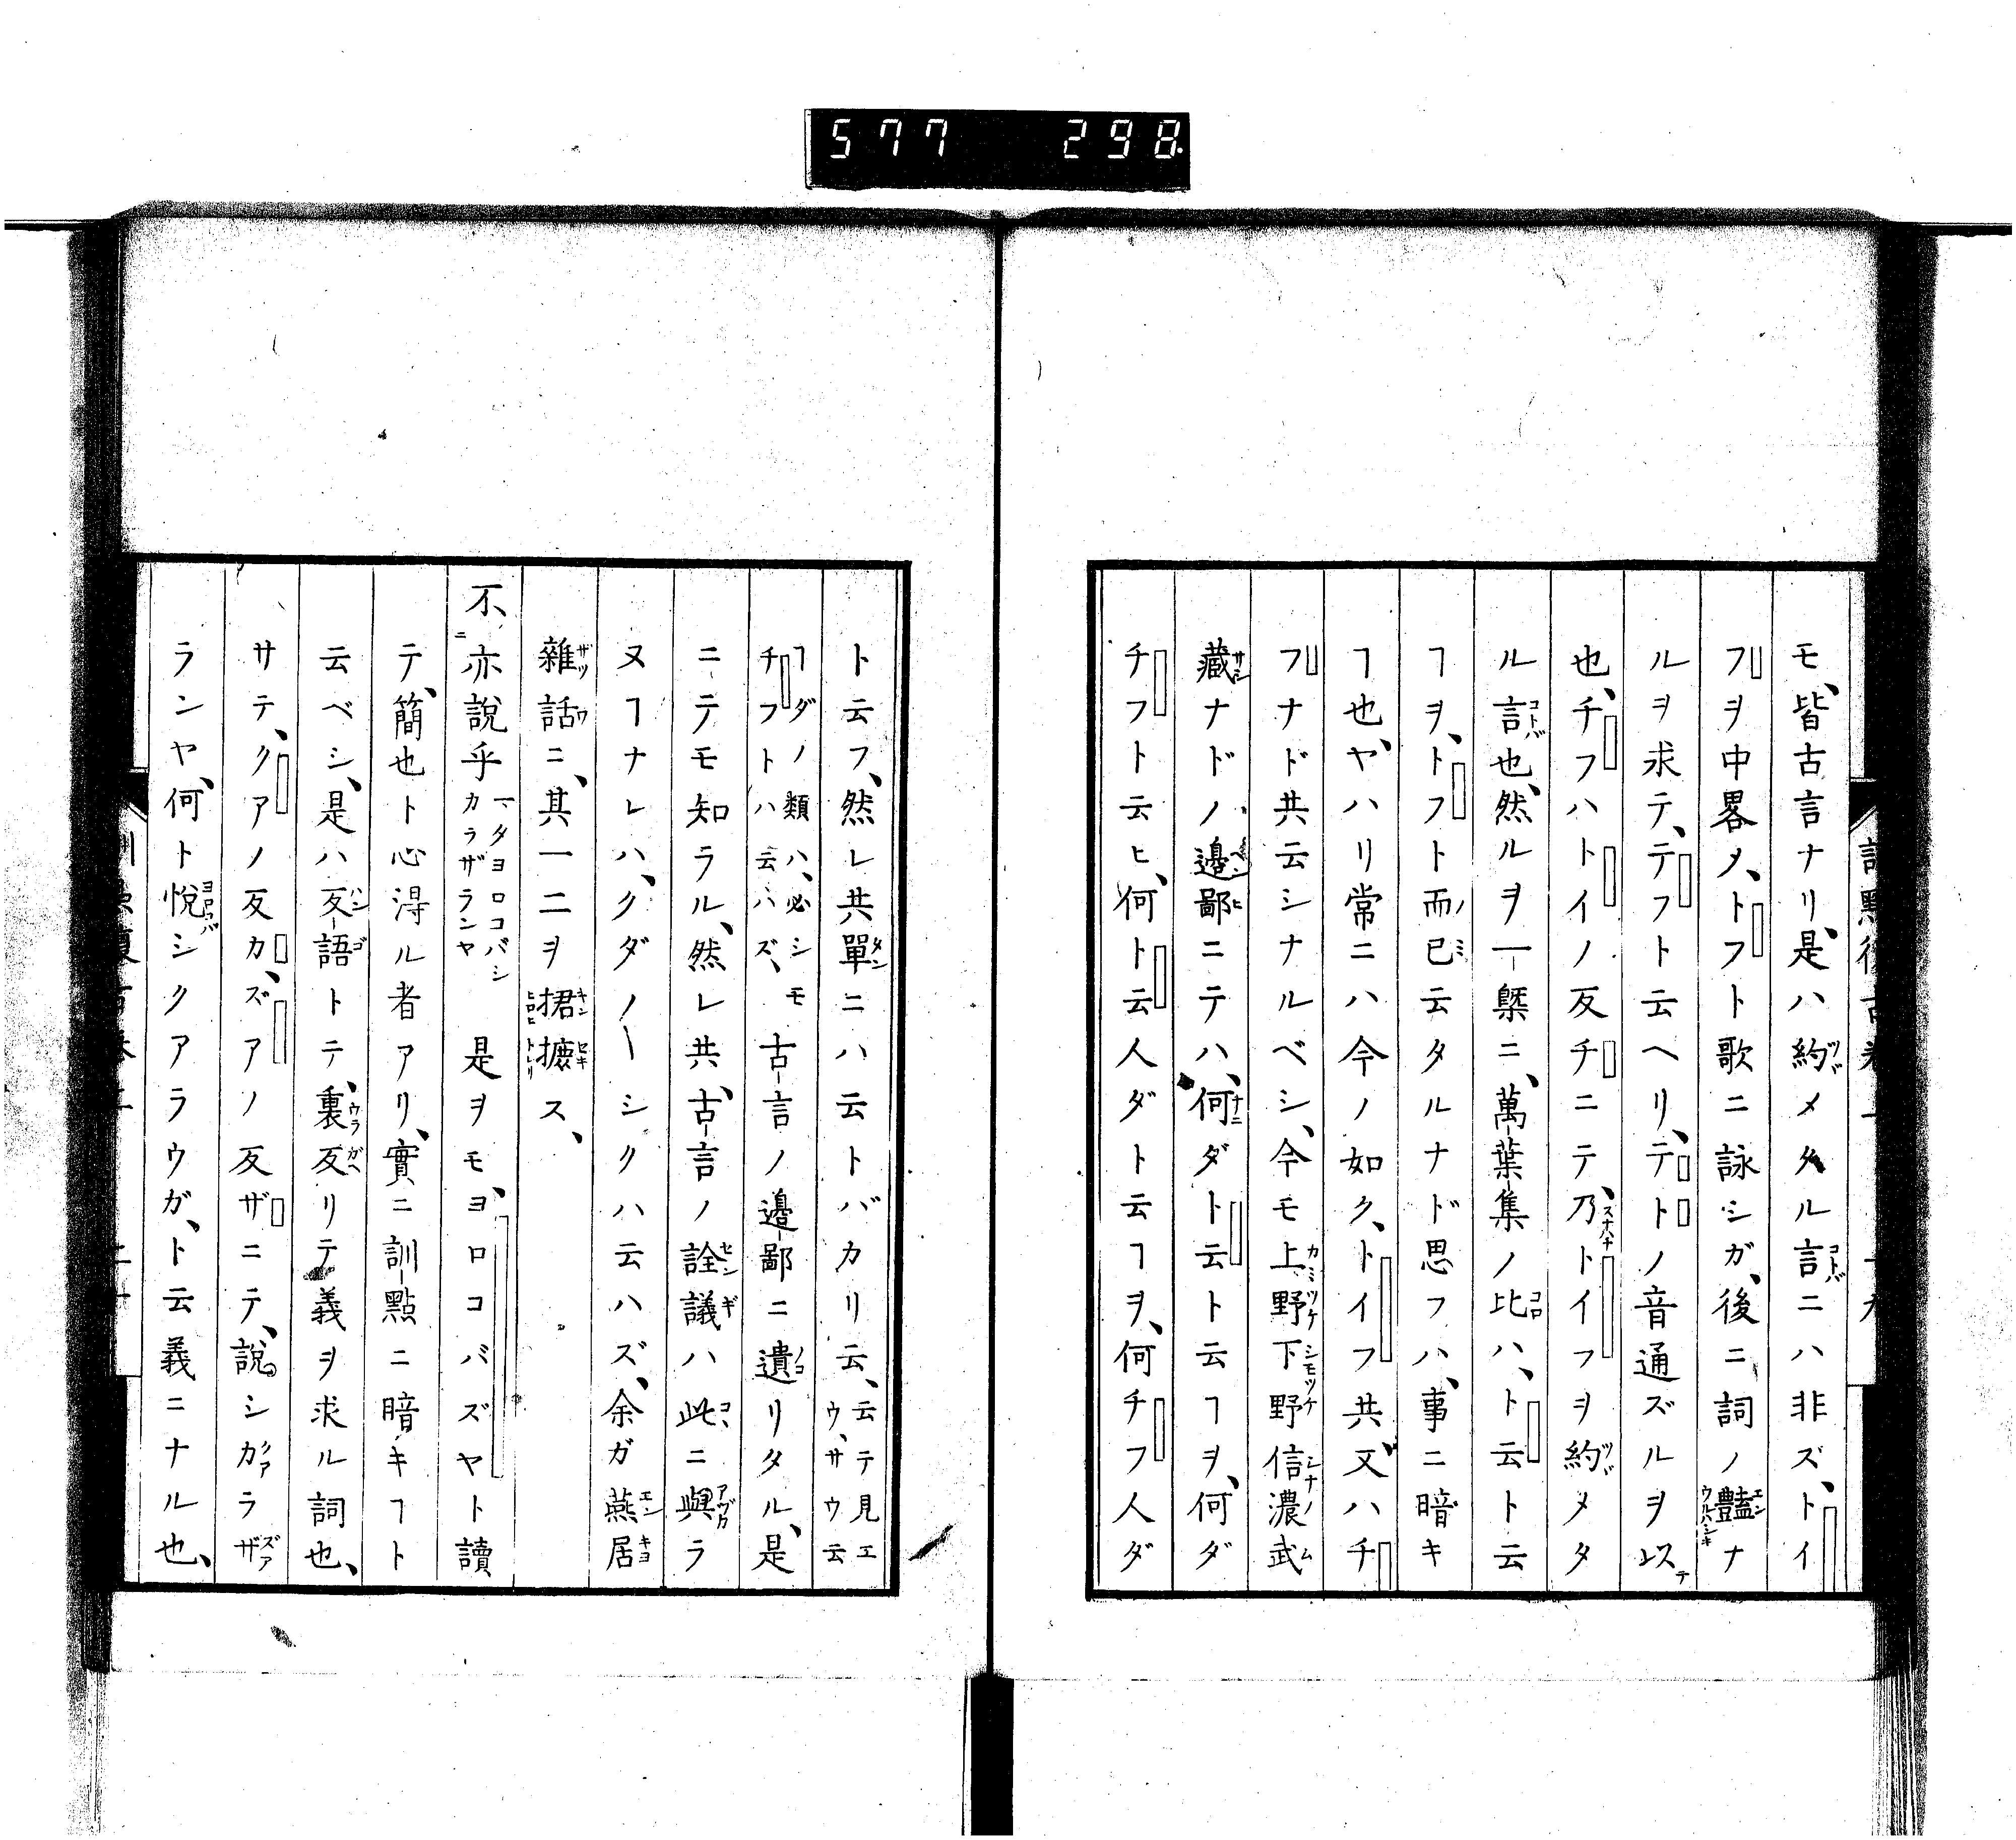 577 298
モ、皆古言ナリ、是ハ約メタル言ニハ非ズ、トイ
フヲ中畧メ、トフト歌ニ詠シガ、後ニ詞ノ豔ナ
ルヲ求テ、テフト云ヘリ、テトノ音通ズルヲ以テ
也、チフハトイノ反チニテ、乃トイフヲ約メタ
ル言也、然ルヲ一槩ニ、萬葉集ノ比ハ、ト云ト云
ヿヲ、トフト而已云タルナド思フハ、事ニ暗キ
ヿ也、ヤハリ常ニハ今ノ如ク、トイフ共、又ハチ
フナド共云シナルベシ、今モ上野下野信濃武
藏ナドノ、邊鄙ニテハ、何ダト云ト云ヿヲ、何ダ
チフト云ヒ、何ト云人ダト云ヿヲ、何チフ人ダ
ト云フ、然レ共單ニハ云トバカリ云、云テ見エウ、サウ云
ヿダノ類ハ、必シモチフトハ云ハズ、古言ノ邊鄙ニ遺リタル、是
ニテモ知ラル、然レ共、古言ノ詮議ハ此ニ與ラ
ヌヿナレハ、クダノ〳〵シクハ云ハズ、余ガ燕居
雜話ニ、其一二ヲ捃摭ス、
不亦說乎 マタヨロコバシカラザランヤ 是ヲモ、ヨロコバズヤト讀
テ、簡也ト心得ル者アリ、實ニ訓點ニ暗キヿト
云ベシ、是ハ反語トテ、裏反リテ義ヲ求ル詞也、
サテ、クアノ反カ、ズアノ反ザニテ、說シカラザ
ランヤ、何ト悅シクアラウガ、ト云義ニナル也、